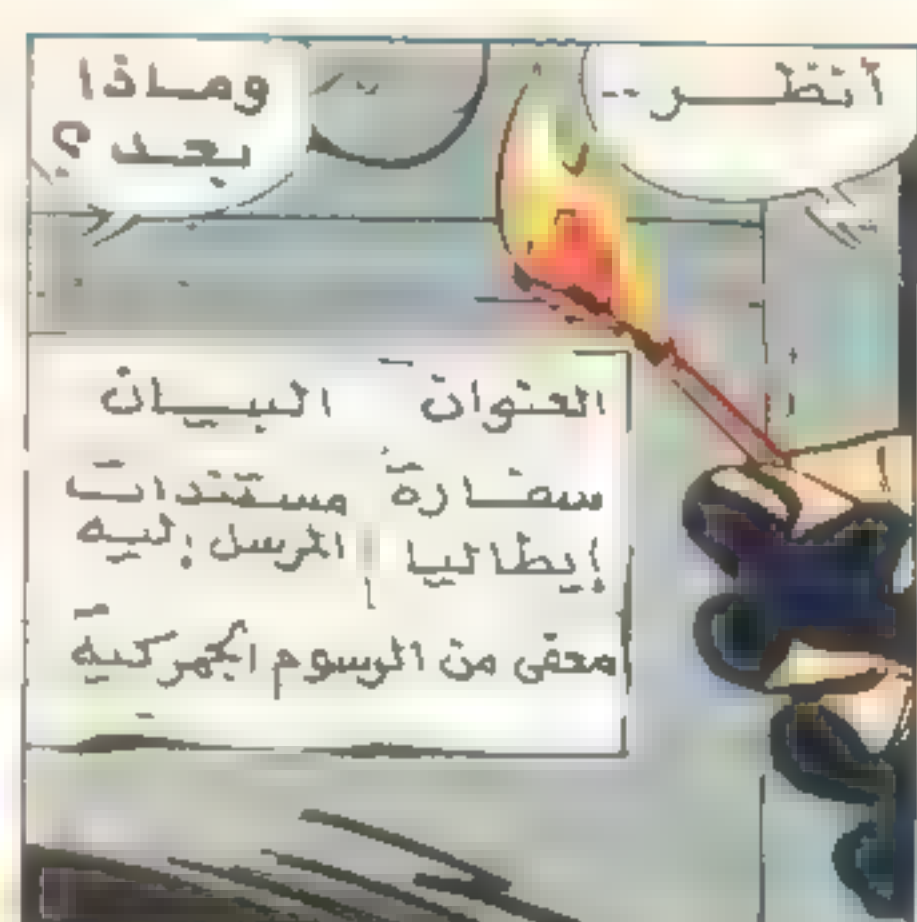 أنظــر --
ومـاذا
بعـد ؟
العنوان البيـان
سفـارة مستندات
إيطاليا المرسل إليه
معفى من الرسوم الجمركية